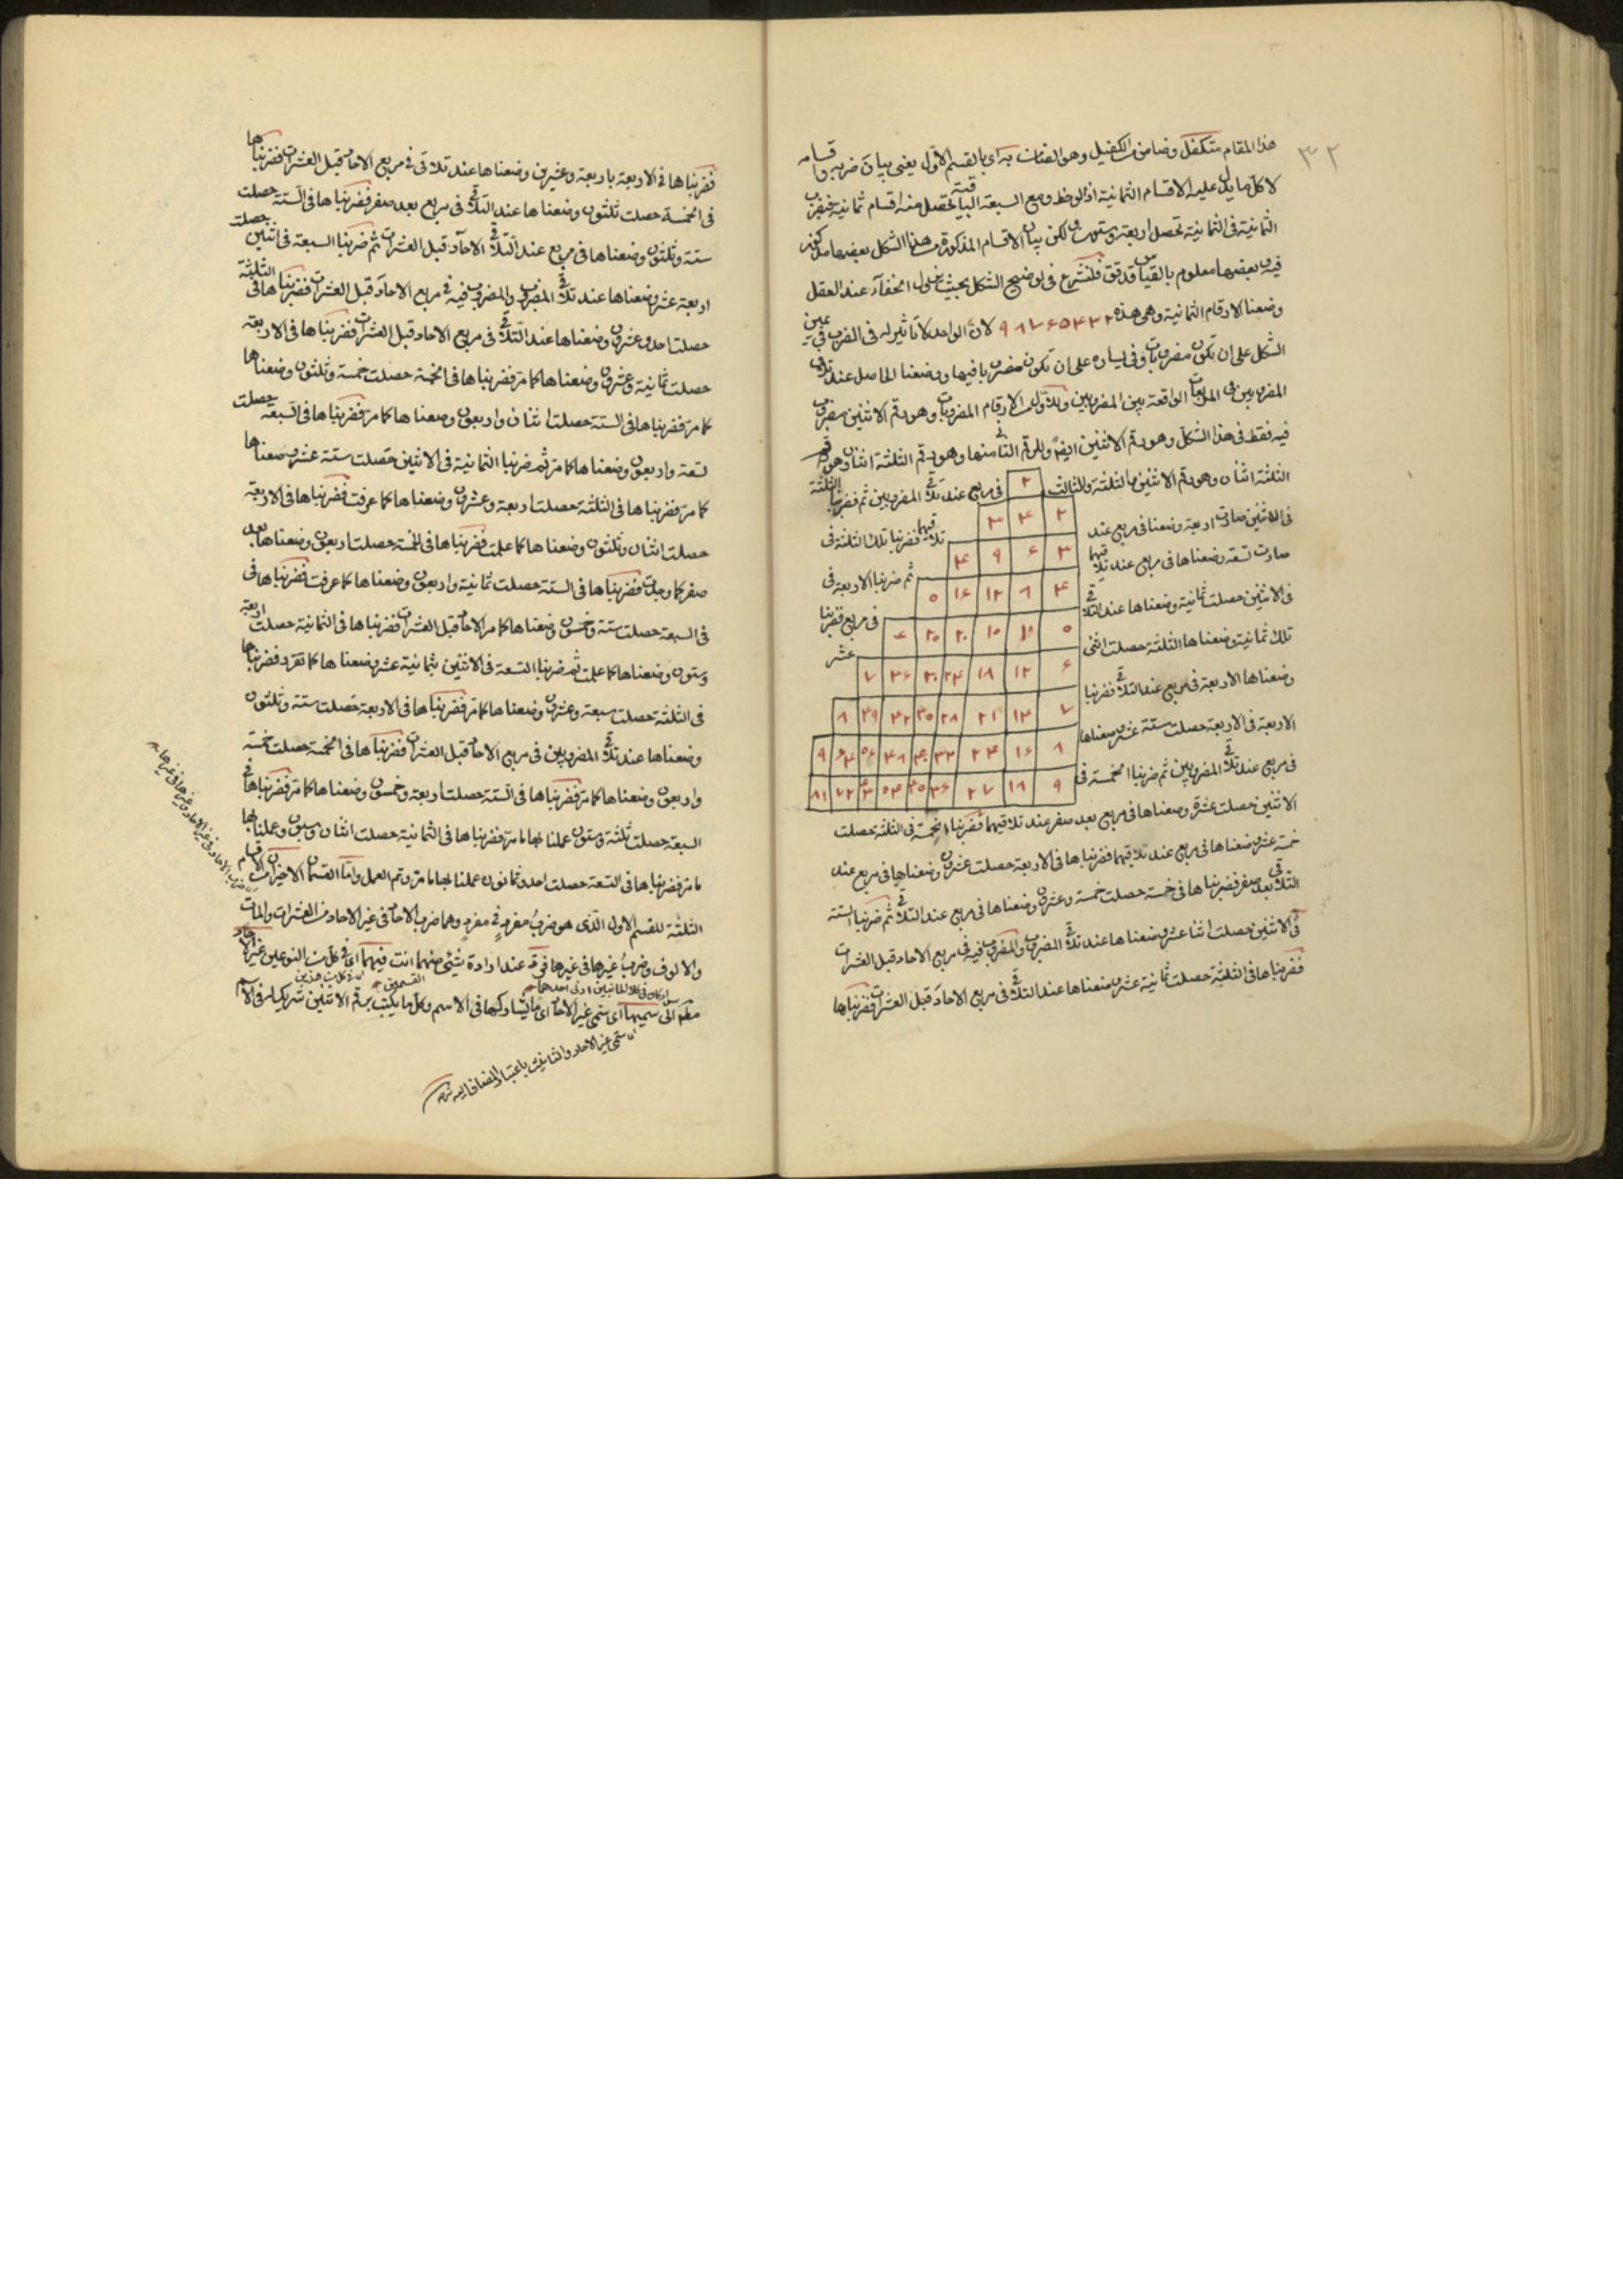 ٣٢
هذا المقام متكفل وضامن من الكفيل وهو الضمان به اى بالقسم الاول يعنى ببيان ضربه واقسامه
لا كل ما يدل عليه الاقسام الثمانية اذ لو حظ ومع السبعة الباقية تحصل منه اقسام ثمانية فنضرب
الثمانية فى الثمانية تحصل اربعة وستون لكن بيان الاقسام المذكورة من هذا الشكل بعضها مذكور
فيه وبعضها معلوم بالقياس فلنشرع فى توضيح الشكل بحيث الخفاء عند العقل
وضعنا الارقام الثمانية وهى هذه ٢ ٣ ۴ ۵ ۶ ٧ ٨ ٩ لان الواحد لا تأثير له فى الضرب فى يمين
الشكل على ان تكون مضروبات وفى يساره على ان تكون مضروبا فيها ووضعنا الحاصل عند تلاقى
المضروبين فى المربعات الواقعة بين المضروبين وللاول من الارقام المضروبات وهو رقم الاثنين مضروب
فيه فقط فى هذا الشكل وهو رقم الاثنين ايضا وللرقم الثانى منها وهو رقم الثلثة اثنان وهو رقم
الثلثة اثنان وهو رقم الاثنين والثلثة وللثالث ٢ فى مربع عند تلاقى المضروبين ثم ضربنا الثلثة
فى الاثنين صارت اربعة وضعنا فى مربع عند ٢ ۴ ٣ تلاقيهما فضربنا تلك الثلثة فى
صارت تسعة وضعناها فى مربع عند تلاقيهما ٣ ۶ ٩ ۴ ثم ضربنا الاربعة فى
فى الاثنين حصلت ثمانية وضعناها عند التلاقى ۴ ٨ ١٢ ١۶ ۵ فى مربع فضربنا
تلك ثمانية وضعناها الثلثة حصلت اثنى ۵ ١٠ ١۵ ٢٠ ٢۵ ۶ عشر
وضعناها الاربعة فى مربع عند التلاقى فضربنا ۶ ١٢ ١٨ ٢۴ ٣٠ ٣۶ ٧
الاربعة فى الاربعة حصلت ستة عشر وضعناها ٧ ١۴ ٢١ ٢٨ ٣۵ ۴٢ ۴٩ ٨
فى مربع عند تلاقى المضروبين ثم ضربنا الخمسة فى ٨ ١۶ ٢۴ ٣٢ ۴٠ ۴٨ ۵۶ ۶۴ ٩
٩ ١٨ ٢٧ ٣۶ ۴۵ ۵۴ ۶٣ ٧٢ ٨١
الاثنين حصلت عشرة وضعناها فى مربع بعد صفر عند تلاقيهما فضربنا الخمسة فى الثلثة حصلت
خمسة عشر وضعناها فى مربع عند تلاقيهما فضربناها فى الاربعة حصلت عشرون وضعناها فى مربع عند
التلاقى بعد صفر فضربناها فى خمسة حصلت خمسة وعشرون وضعناها فى مربع عند التلاقى ثم ضربنا الستة
فى الاثنين حصلت اثنا عشر وضعناها عند تلاقى المضروب والمضروب فيه فى مربع الاحاد قبل العشرات
فضربناها فى الثلثة حصلت ثمانية عشر وضعناها عند التلاقى فى مربع الاحاد قبل العشرات فضربناها
فضربناها فى الاربعة باربعة وعشرين وضعناها عند تلاقى فى مربع الاحاد قبل العشرات فضربناها
فى الخمسة حصلت ثلثون وضعناها عند التلاقى فى مربع بعد صفر فضربناها فى الستة حصلت
ستة وثلثون وضعناها فى مربع عند التلاقى الاحاد قبل العشرات ثم ضربنا السبعة فى اثنين حصلت
اربعة عشر وضعناها عند تلاقى المضروب والمضروب فيه فى مربع الاحاد قبل العشرات فضربناها فى الثلثة
حصلت احد وعشرون وضعناها عند التلاقى فى مربع الاحاد قبل العشرات فضربناها فى الاربعة
حصلت ثمانية وعشرون وضعناها كما مر فضربناها فى الخمسة حصلت خمسة وثلثون وضعناها
كما مر فضربناها فى الستة حصلت اثنان واربعون وضعناها كما مر فضربناها فى السبعة حصلت
تسعة واربعون وضعناها كما مر ثم ضربنا الثمانية فى الاثنين حصلت ستة عشر وضعناها
كما مر فضربناها فى الثلثة حصلت اربعة وعشرون وضعناها كما عرفت فضربناها فى الاربعة
حصلت اثنان وثلثون وضعناها كما علمت فضربناها فى الخمسة حصلت اربعون وضعناها بعد
صفر كما وجدت فضربناها فى الستة حصلت ثمانية واربعون وضعناها كما عرفت فضربناها فى
فى السبعة حصلت ستة وخمسون وضعناها كما مر الاحاد قبل العشرات فضربناها فى الثمانية حصلت اربعة
وستون وضعناها كما علمت ثم ضربنا التسعة فى الاثنين بثمانية عشر وضعناها كما تقرر فضربناها
فى الثلثة حصلت سبعة وعشرون وضعناها كما مر فضربناها فى الاربعة حصلت ستة وثلثون
وضعناها عند تلاقى المضروبين فى مربع الاحاد قبل العشرات فضربناها فى الخمسة حصلت خمسة
واربعون وضعناها كما مر فضربناها فى الستة حصلت اربعة وخمسون وضعناها كما مر فضربناها فى
السبعة حصلت ثلثة وستون عملنا بها ما مر فضربناها فى الثمانية حصلت اثنان وسبعون وعملنا بها
ما مر فضربناها فى التسعة حصلت احد وثمانون عملنا بها ما مر وتم العمل واما القسمان الاخيران من الاقسام
الثلثة للقسم الاول الذى هو ضرب مفرد فى مفرد وهما ضرب الاحاد فى غير الاحاد من العشرات والمات
والالوف وضرب غيرها فى غيرها فرد عند ارادة شئ منهما انت فيهما اى فى كل من النوعين غير الاحاد
القسمين
مطلقا الى سميها اى سمى غير الاحاد اى ما يشاركها فى الاسم وكل ما يكتب برقم الاثنين شريك له فى الاسم
اى سمى غير الاحاد والتانيث باعتبار المضاف اليه